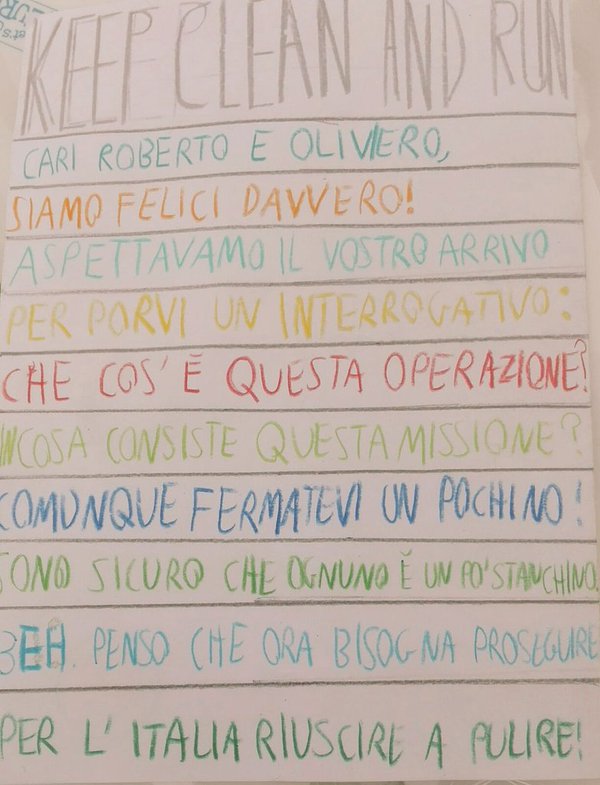 KEEP CLEAN AND RUN
CARI ROBERTO E OLIVIERO,
SIAMO FELICI DAVVERO!
ASPETTAVAMO IL VOSTRO ARRIVO
PER PORVI UN INTERROGATIVO:
CHE COS'È QUESTA OPERAZIONE?
IN COSA CONSISTE QUESTA MISSIONE?
COMUNQUE FERMATEVI UN POCHINO!
SONO SICURO CHE OGNUNO È UN PO' STANCHINO.
BEH. PENSO CHE ORA BISOGNA PROSEGUIRE
PER L'ITALIA RIUSCIRE A PULIRE!